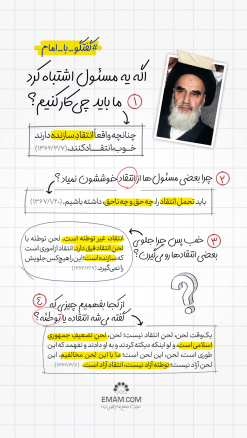 #گفتگو_با_امام
اگه یه مسئول اشتباه کرد
ما باید چی‌کار کنیم؟
۱
چنانچه واقعاً انتقاد سازنده دارند
خوب، انتقاد کنند. (۱۳۶۲/۳/۷)
۲ چرا بعضی مسئول‌ها از انتقاد خوششون نمیاد؟
باید تحمل انتقاد را، چه حق و چه ناحق، داشته باشیم. (۱۳۶۷/۱/۲۰)
۳ خب پس چرا جلوی
بعضی انتقادها رو می‌گیرن؟
انتقاد، غیر توطئه است. لحن توطئه با
لحن انتقاد فرق دارد. انتقاد از اموری است
که سازنده است؛ این را هیچ‌کس جلویش
را نمی‌گیرد. (۱۳۶۲/۳/۷)
۴ از کجا بفهمیم چیزی که
گفته می‌شه انتقاده یا توطئه؟
یک‌وقت لحن، لحن انتقاد نیست؛ لحن، تضعیف جمهوری
اسلامی است، و لو اینکه دیکته کردند و به او دادند و نفهمد که این
طوری است، لحن، این لحن است؛ ما با این لحن مخالفیم. این
لحن آزاد نیست؛ توطئه آزاد نیست، انتقاد آزاد است.
EMAM.COM